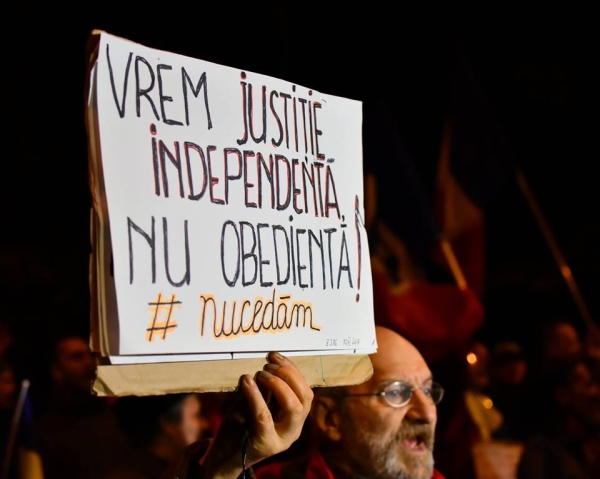 VREM JUSTIȚIE
INDEPENDENTĂ,
NU OBEDIENTĂ!
# nucedăm